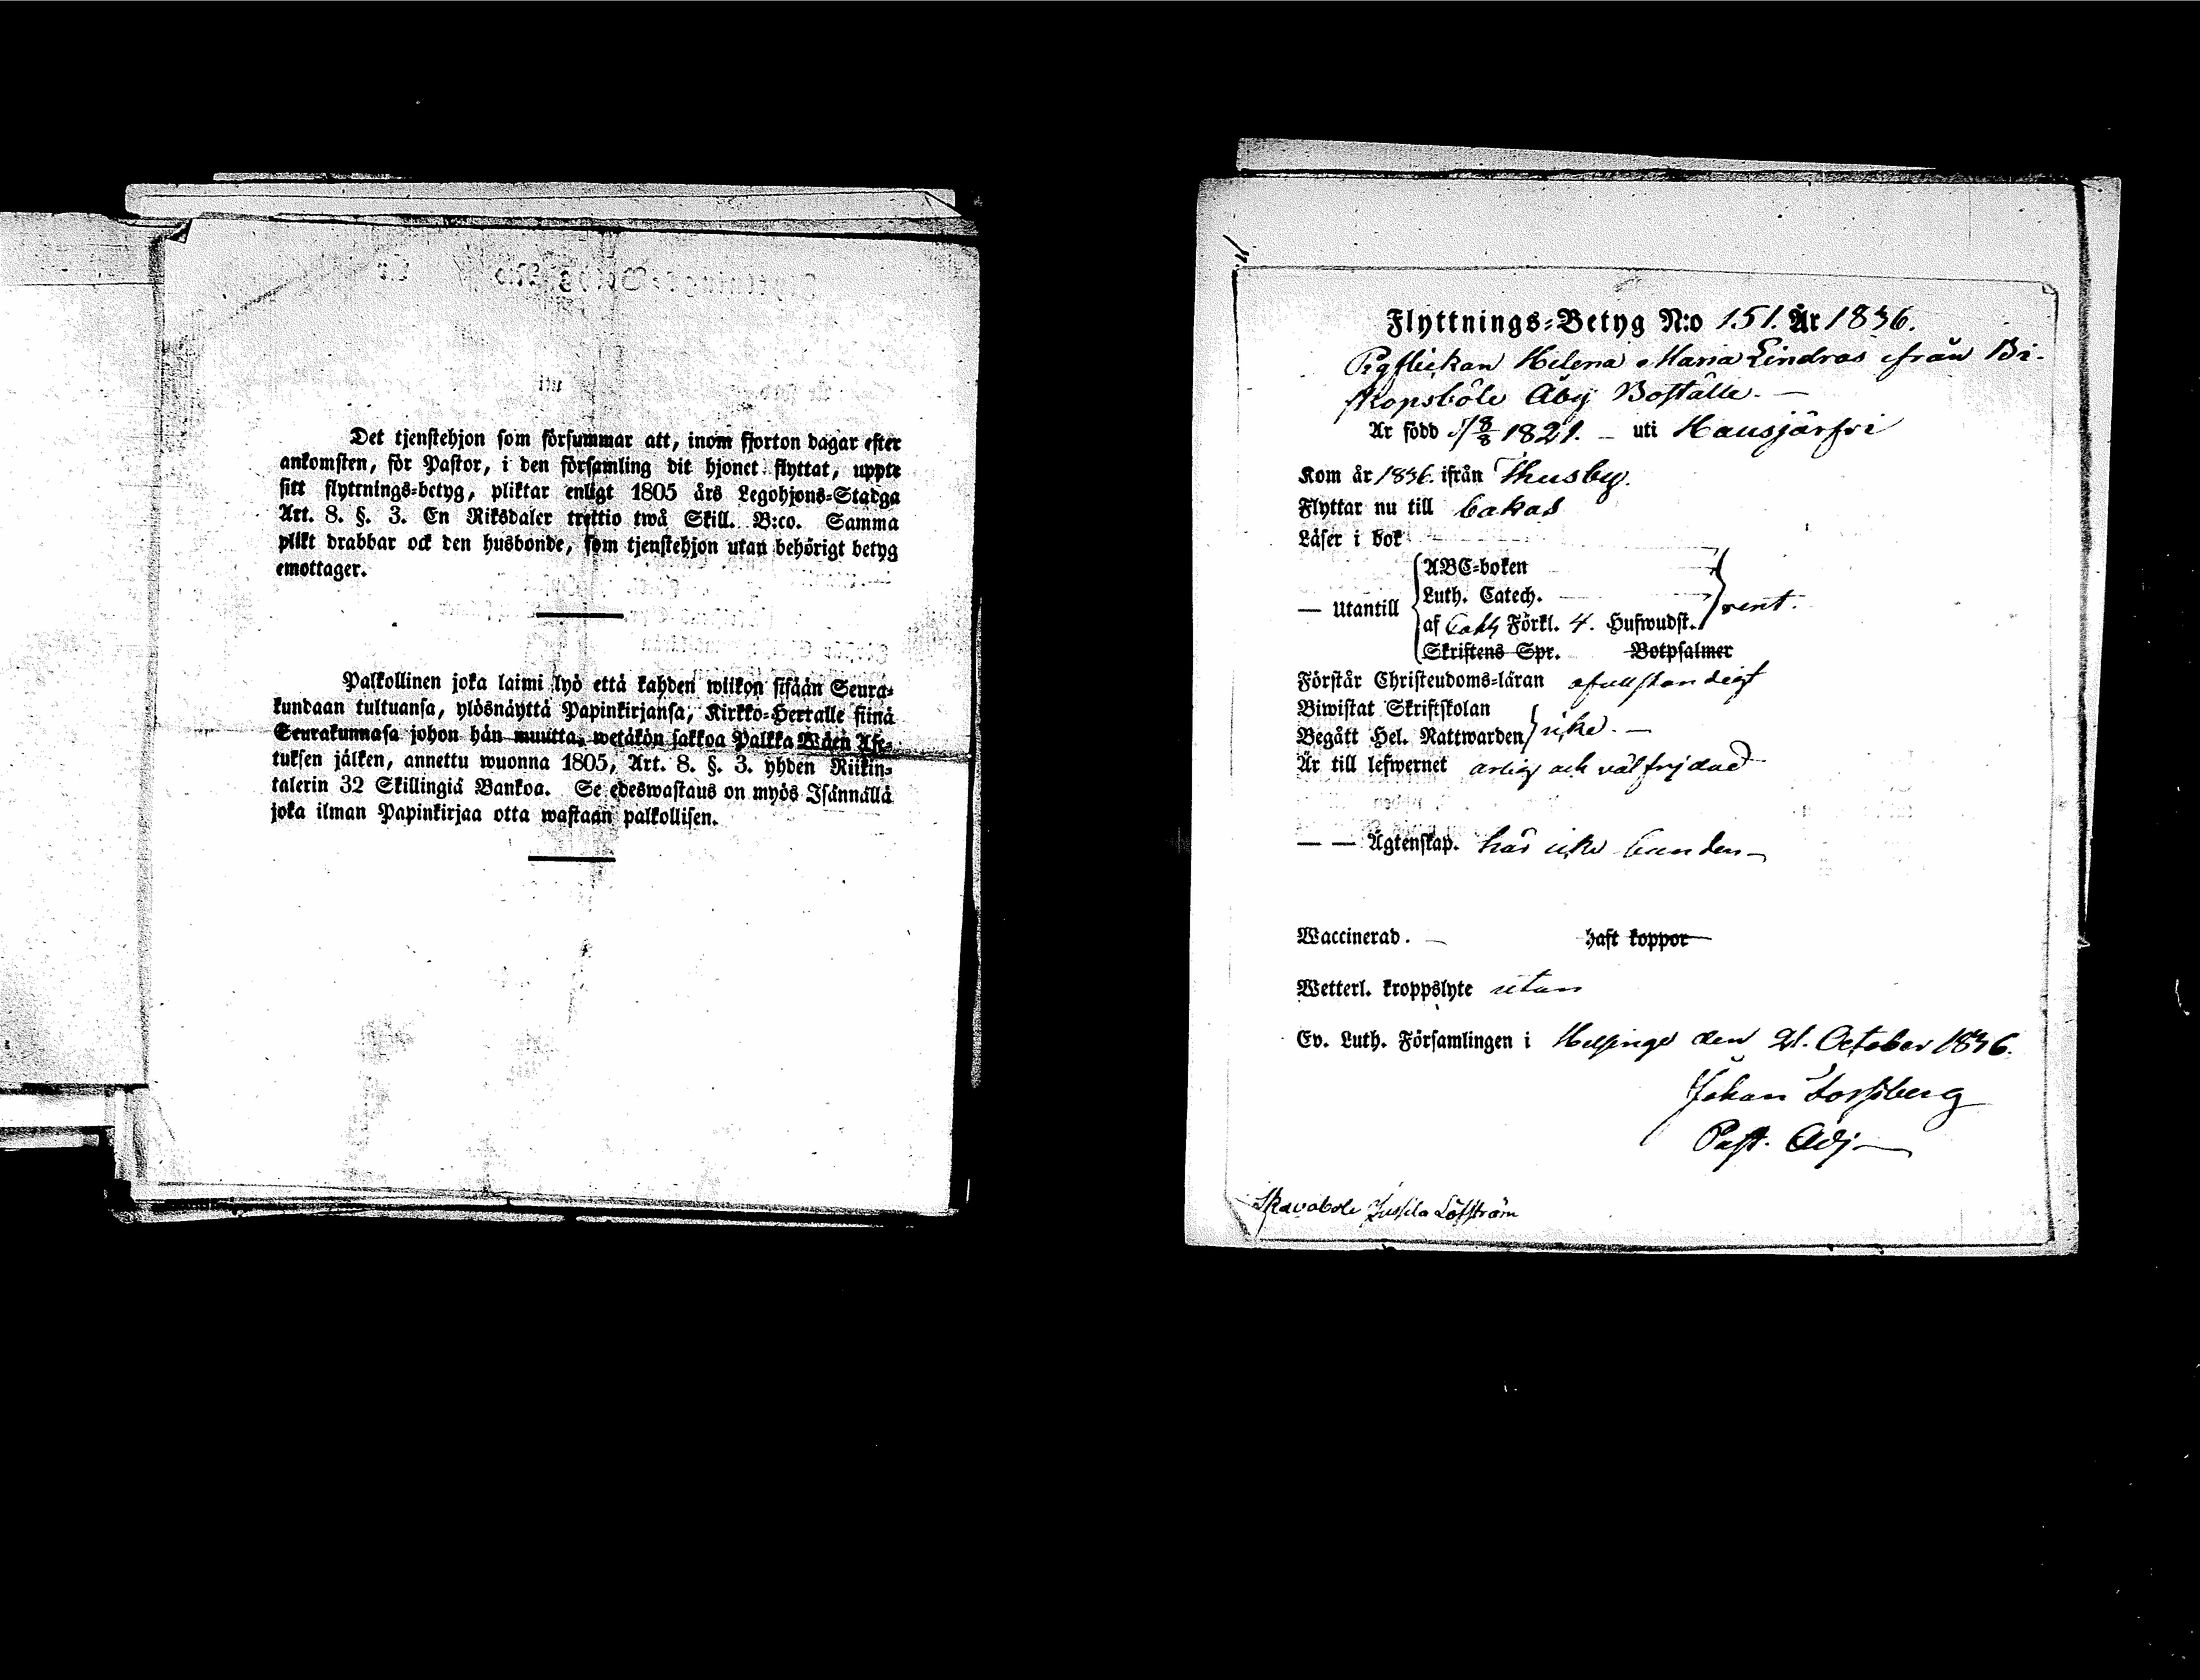 Det tjenstehjon som försummar att, inom fjorton dagar efter
ankomsten, för Pastor, i den församling dit hjonet flyttat, uppte
sitt flyttnings-betyg, pliktar enligt 1805 års Legohjons-Stadga
Art. 8. §. 3. En Riksdaler trettio twå Skill. B:co. Samma
plikt drabbar ock den husbonde, som tjenstehjon utan behörigt betyg
emottager.
Palkollinen joka laimi lyö että kahden wiikon sisään Seura-
kundaan tultuansa, ylösnäyttä Papinkirjansa, Kirkko-Herralle siinä
Seurakunnasa johon hän muutta, wetäkön sakkoa Palkka Wäen Ase-
tuksen jälken, annettu wuonna 1805, Art. 8. §. 3. yhden Riikin-
talerin 32 Skillingiä Bankoa. Se edeswastaus on myös Isännällä
joka ilman Papinkirjaa otta wastaan palkollisen.
Flyttnings-Betyg N:o 151. År 1836.
Pigflickan Helena Maria Lindros ifrån Bi-
skopsböle Åby Boställe. —
Är född d. 8/8 1821. — uti Hausjärfvi
Kom år 1836. ifrån Thusby.
Flyttar nu till
Läser i bok
— Utantill
ABC-boken
Luth. Catech.
af Förkl. 4. Hufwudst. rent.
Skriftens Spr. Botpsalmer
Förstår Christendoms-läran ofullständigt
Biwistat Skriftskolan
Begått Hel. Nattwarden icke. —
Är till lefwernet ärlig och välfrejdad
— — Ägtenskap. här icke bunden —
Waccinerad. — haft koppor
Wetterl. kroppslyte utan
Ev. Luth. Församlingen i Helsinge den 21. October 1836.
Johan Forssberg
Past. Adj.
Skavaböle Jussila Löfström